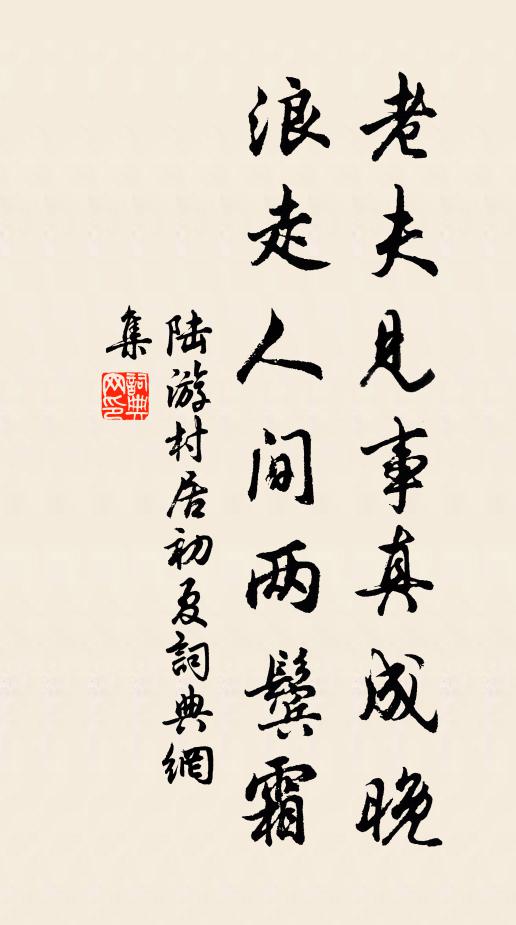 老夫见事真成晚
浪走人间两鬓霜
陆游村居初夏詞典網
集
詞典网印